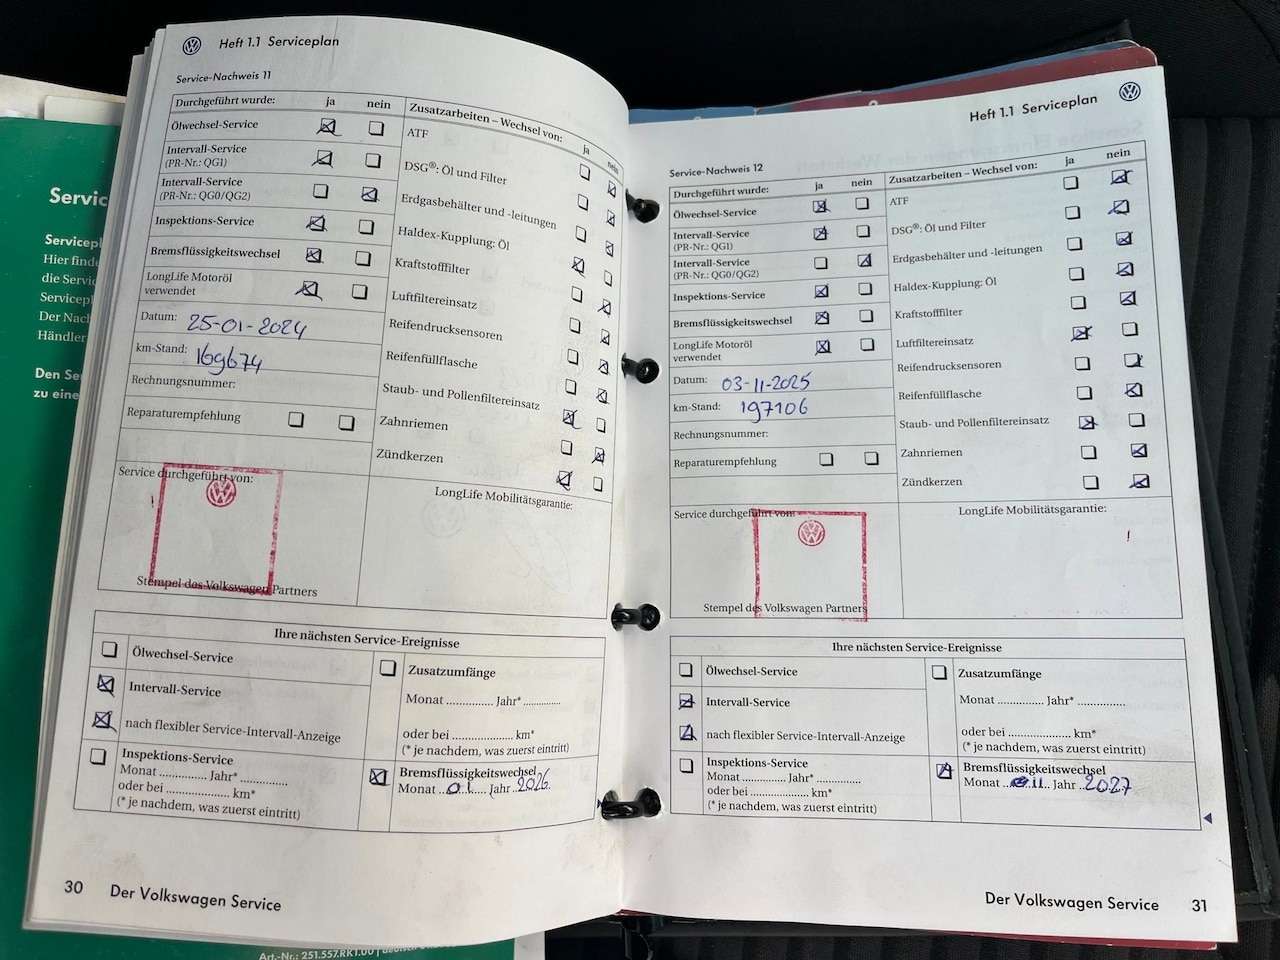 Heft 1.1 Serviceplan
Service-Nachweis 11
Durchgeführt wurde: ja nein
Ölwechsel-Service
Intervall-Service
(PR-Nr.: QG1)
Intervall-Service
(PR-Nr.: QG0/QG2)
Inspektions-Service
Bremsflüssigkeitswechsel
LongLife Motoröl
verwendet
Datum: 25-01-2024
km-Stand: 169674
Rechnungsnummer:
Reparaturempfehlung
Zusatzarbeiten – Wechsel von: ja nein
ATF
DSG®: Öl und Filter
Erdgasbehälter und -leitungen
Haldex-Kupplung: Öl
Kraftstofffilter
Luftfiltereinsatz
Reifendrucksensoren
Reifenfüllflasche
Staub- und Pollenfiltereinsatz
Zahnriemen
Zündkerzen
Service durchgeführt von:
Stempel des Volkswagen Partners
LongLife Mobilitätsgarantie:
Ihre nächsten Service-Ereignisse
Ölwechsel-Service
Intervall-Service
nach flexibler Service-Intervall-Anzeige
Inspektions-Service
Monat ............... Jahr* ...............
oder bei ............... km*
(* je nachdem, was zuerst eintritt)
Zusatzumfänge
Monat ............... Jahr* ...............
oder bei ............... km*
(* je nachdem, was zuerst eintritt)
Bremsflüssigkeitswechsel
Monat 01 Jahr 2026
30 Der Volkswagen Service
Heft 1.1 Serviceplan
Service-Nachweis 12
Durchgeführt wurde: ja nein
Ölwechsel-Service
Intervall-Service
(PR-Nr.: QG1)
Intervall-Service
(PR-Nr.: QG0/QG2)
Inspektions-Service
Bremsflüssigkeitswechsel
LongLife Motoröl
verwendet
Datum: 03-11-2025
km-Stand: 197106
Rechnungsnummer:
Reparaturempfehlung
Zusatzarbeiten – Wechsel von: ja nein
ATF
DSG®: Öl und Filter
Erdgasbehälter und -leitungen
Haldex-Kupplung: Öl
Kraftstofffilter
Luftfiltereinsatz
Reifendrucksensoren
Reifenfüllflasche
Staub- und Pollenfiltereinsatz
Zahnriemen
Zündkerzen
Service durchgeführt von:
Stempel des Volkswagen Partners
LongLife Mobilitätsgarantie:
Ihre nächsten Service-Ereignisse
Ölwechsel-Service
Intervall-Service
nach flexibler Service-Intervall-Anzeige
Inspektions-Service
Monat ............... Jahr* ...............
oder bei ............... km*
(* je nachdem, was zuerst eintritt)
Zusatzumfänge
Monat ............... Jahr* ...............
oder bei ............... km*
(* je nachdem, was zuerst eintritt)
Bremsflüssigkeitswechsel
Monat 11 Jahr 2027
Der Volkswagen Service 31
Hier
die
Der
Händler
Den
zu eine
Art.-Nr.: 251.557.RK1.00